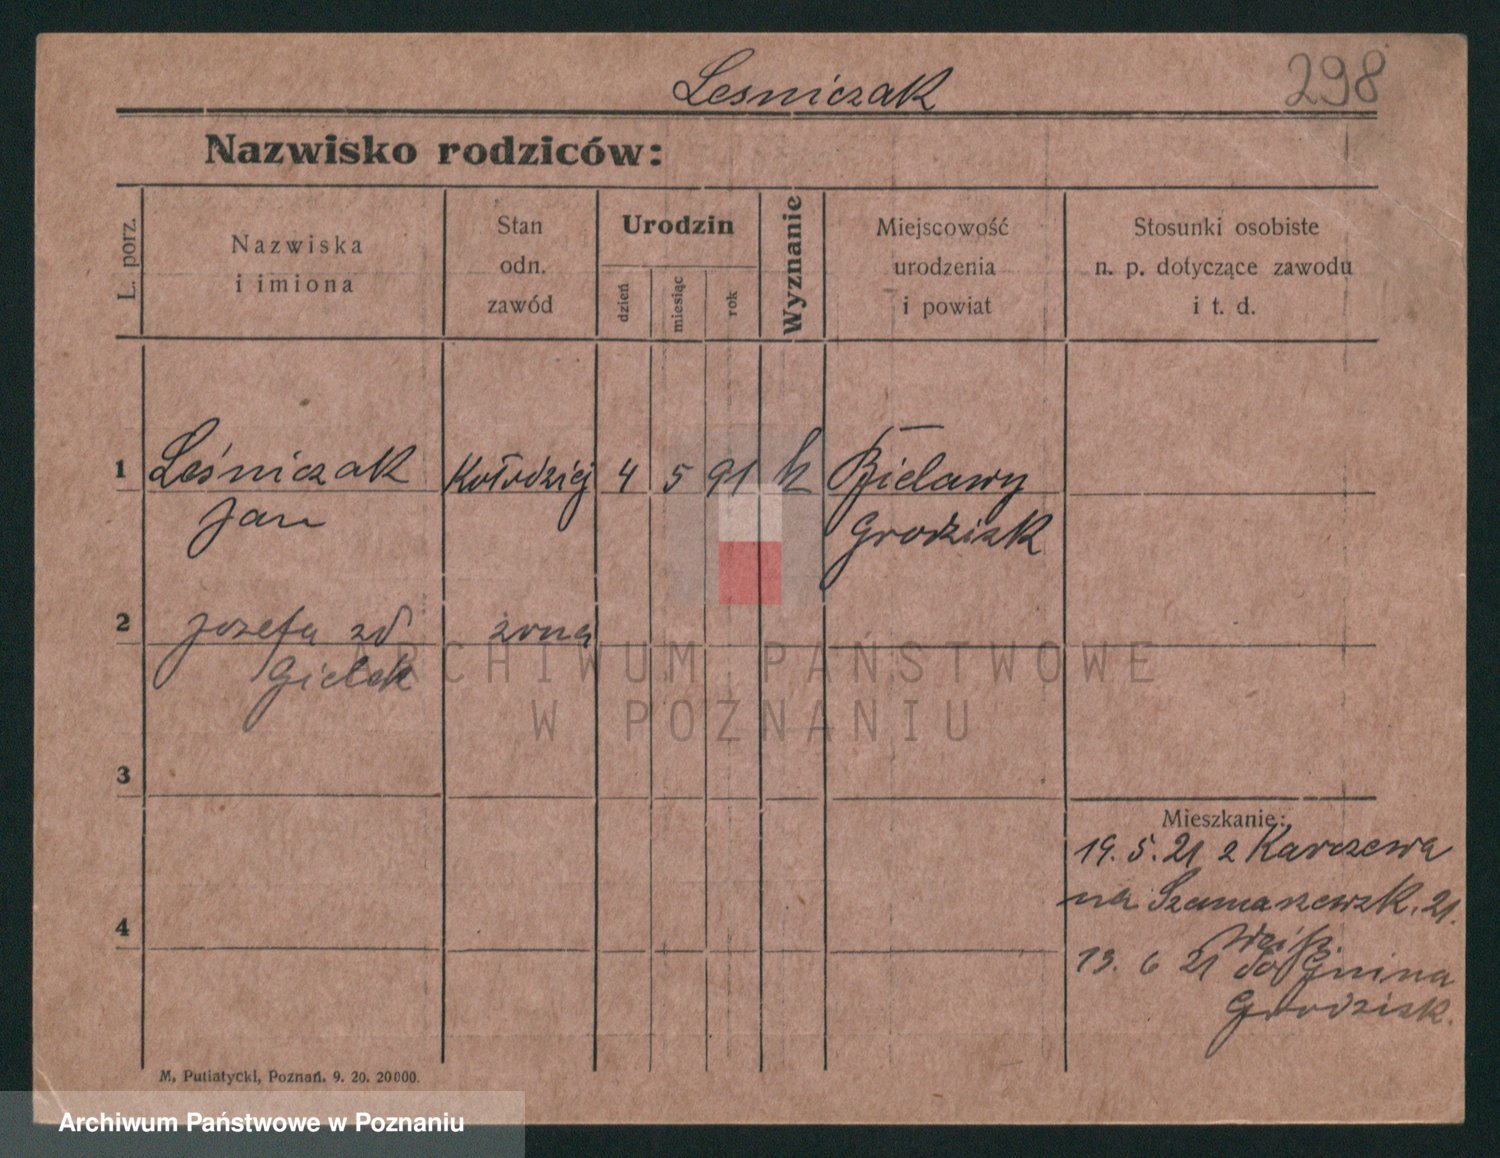 Lesniczak
298
Nazwisko rodziców:
L. porz.
Nazwiska
i imiona
Stan
odn.
zawód
Urodzin
dzień
miesiąc
rok
Wyznanie
Miejscowość
urodzenia
i powiat
Stosunki osobiste
n. p. dotyczące zawodu
i t. d.
1 Leśniczak Kołodziej 4 5 91 k Bielawy
Jan Grodzisk
2 Jozefa zd żona
Gielek
ARCHIWUM PAŃSTWOWE
W POZNANIU
3
Mieszkanie:
19. 5. 21 z Karczewa
na Szamarzewsk. 21.
4
13. 6 21 do Gnina
Grodzisk.
M. Putiatycki, Poznań. 9. 20. 20000.
Archiwum Państwowe w Poznaniu